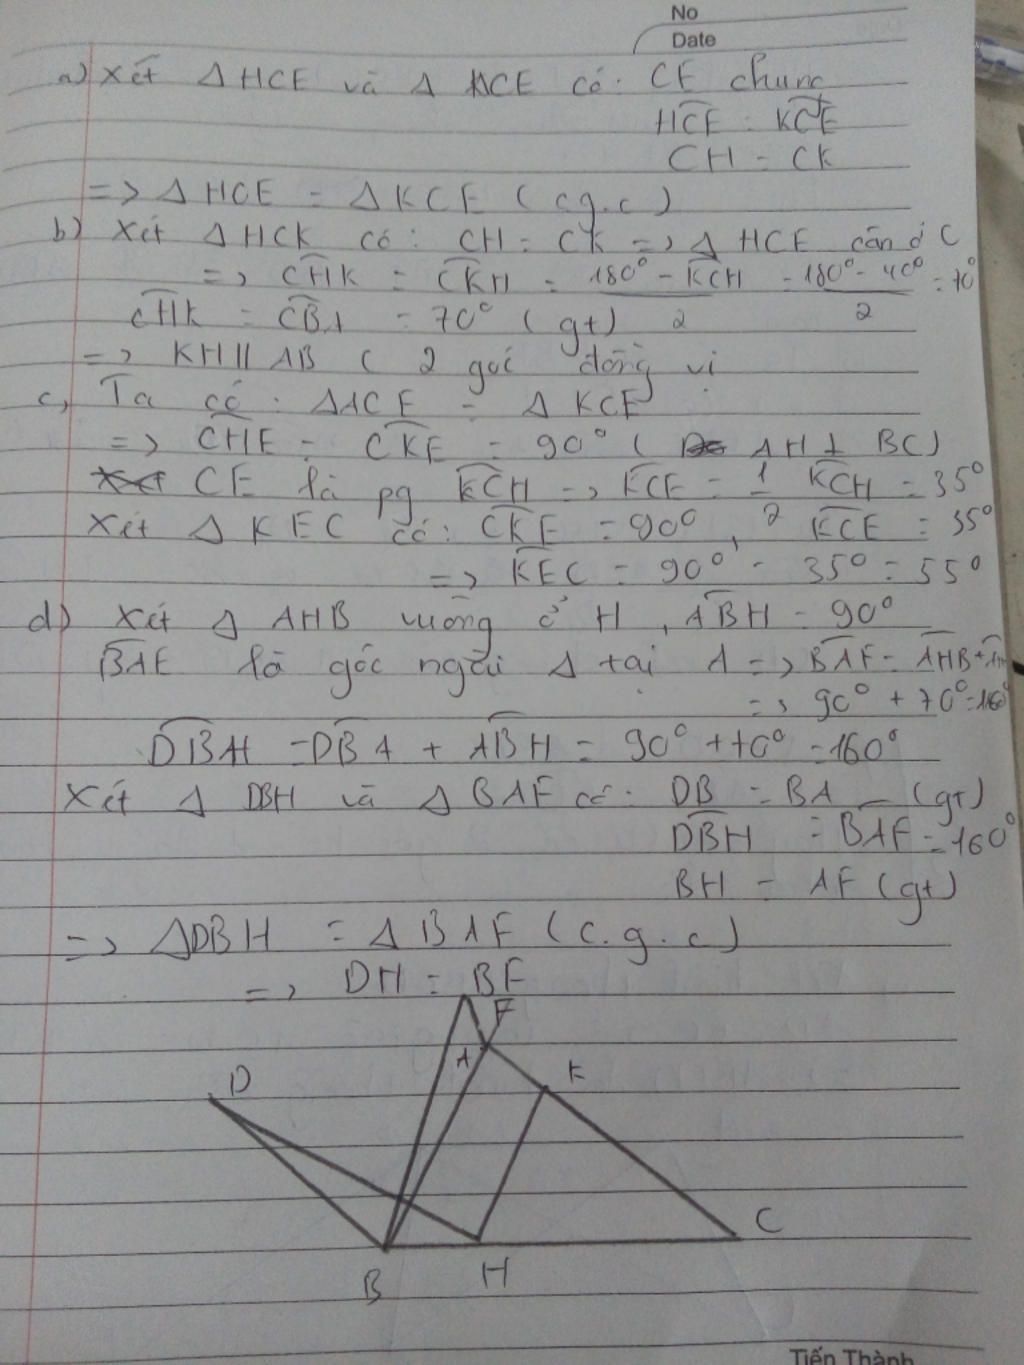 No
Date
a) Xét Δ HCE và Δ KCE có: CE chung
HCE = KCE
CH = CK
=> Δ HCE = Δ KCE (c.g.c)
b) Xét Δ HCK có: CH = CK => Δ HCE cân ở C
=> CHK = CKH = 180° - KCH / 2 = 180° - 40° / 2 = 70°
CHK = CBA = 70° (gt)
=> KH || AB ( 2 góc đồng vị
c, Ta có: ΔACE = Δ KCE
=> CHE = CKE = 90° ( AH ⊥ BC)
CE là pg KCH => KCE = 1/2 KCH = 35°
Xét Δ KEC có: CKE = 90°, KCE = 35°
=> KEC = 90° - 35° = 55°
d) Xét Δ AHB vuông ở H, ABH = 90°
BAE là góc ngoài Δ tại A => BAF = AHB +
=> 90° + 70° = 160°
DBH = DBA + ABH = 90° + 70° = 160°
Xét Δ DBH và Δ BAF có: DB = BA (gt)
DBH = BAF = 160°
BH = AF (gt)
=> ΔDBH = Δ BAF (c.g.c)
=> DH = BF
F
A
D
K
C
B
H
Tiến Thành